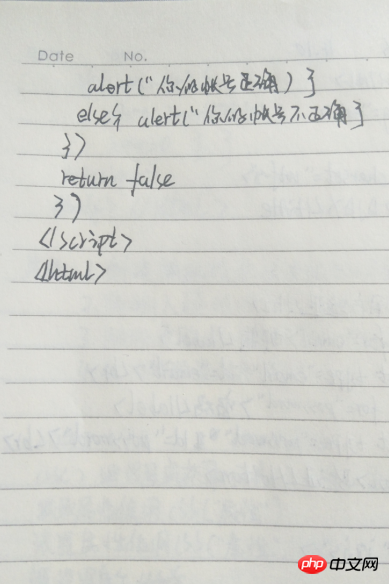 Date No.
alert("你的帐号正确)}
else{ alert("你的帐号不正确}
})
return false
})
</script>
</html>
php 中文网